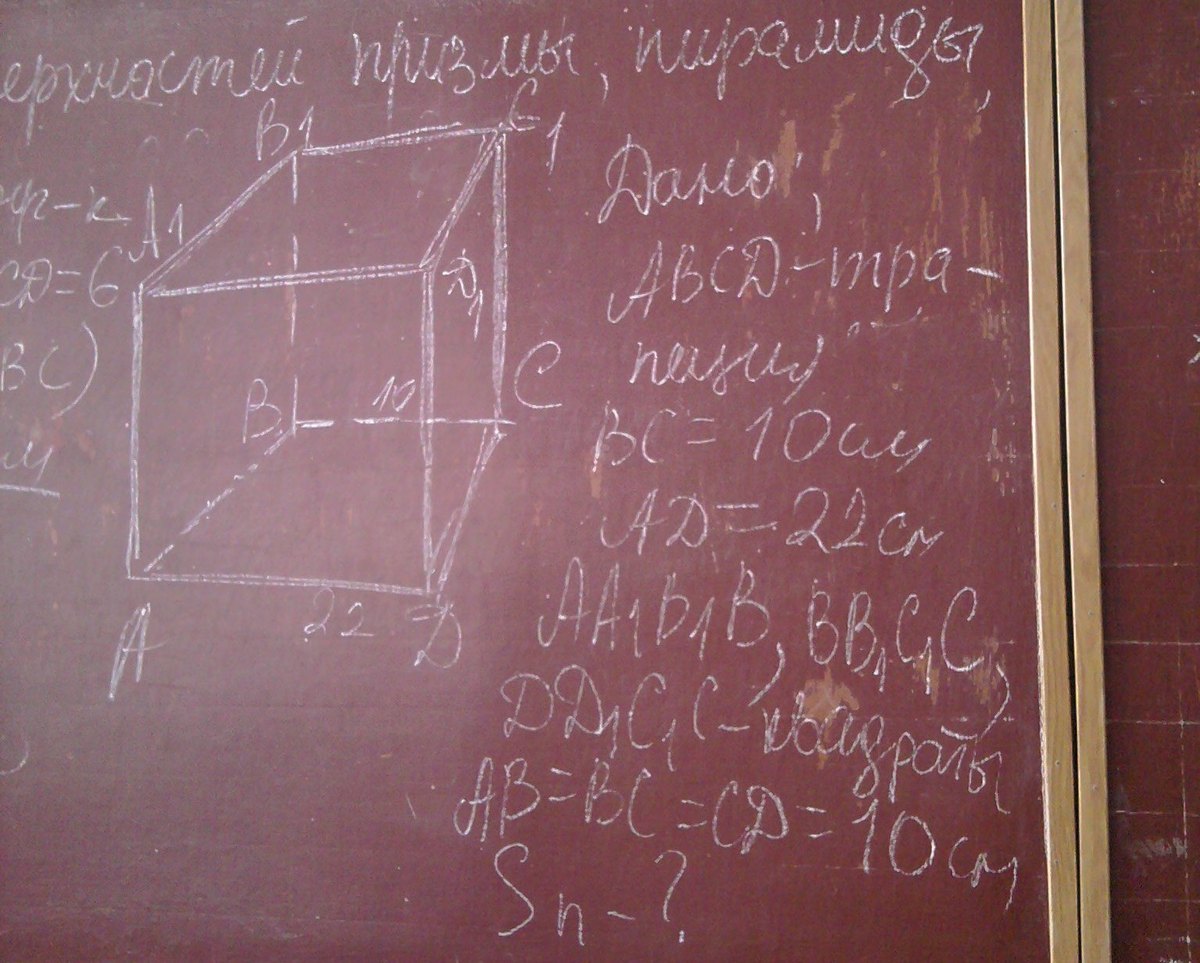 ерхностей призмы, пирамиды,
B1
C1
A1
CD=6
BC)
D1
B
10
C
A
22
D
Дано:
ABCD-тра-
пеция
BC = 10 см
AD = 22 см
AA1B1B, BB1C1C,
DD1C1C - квадраты
AB=BC=CD=10 см
Sп - ?